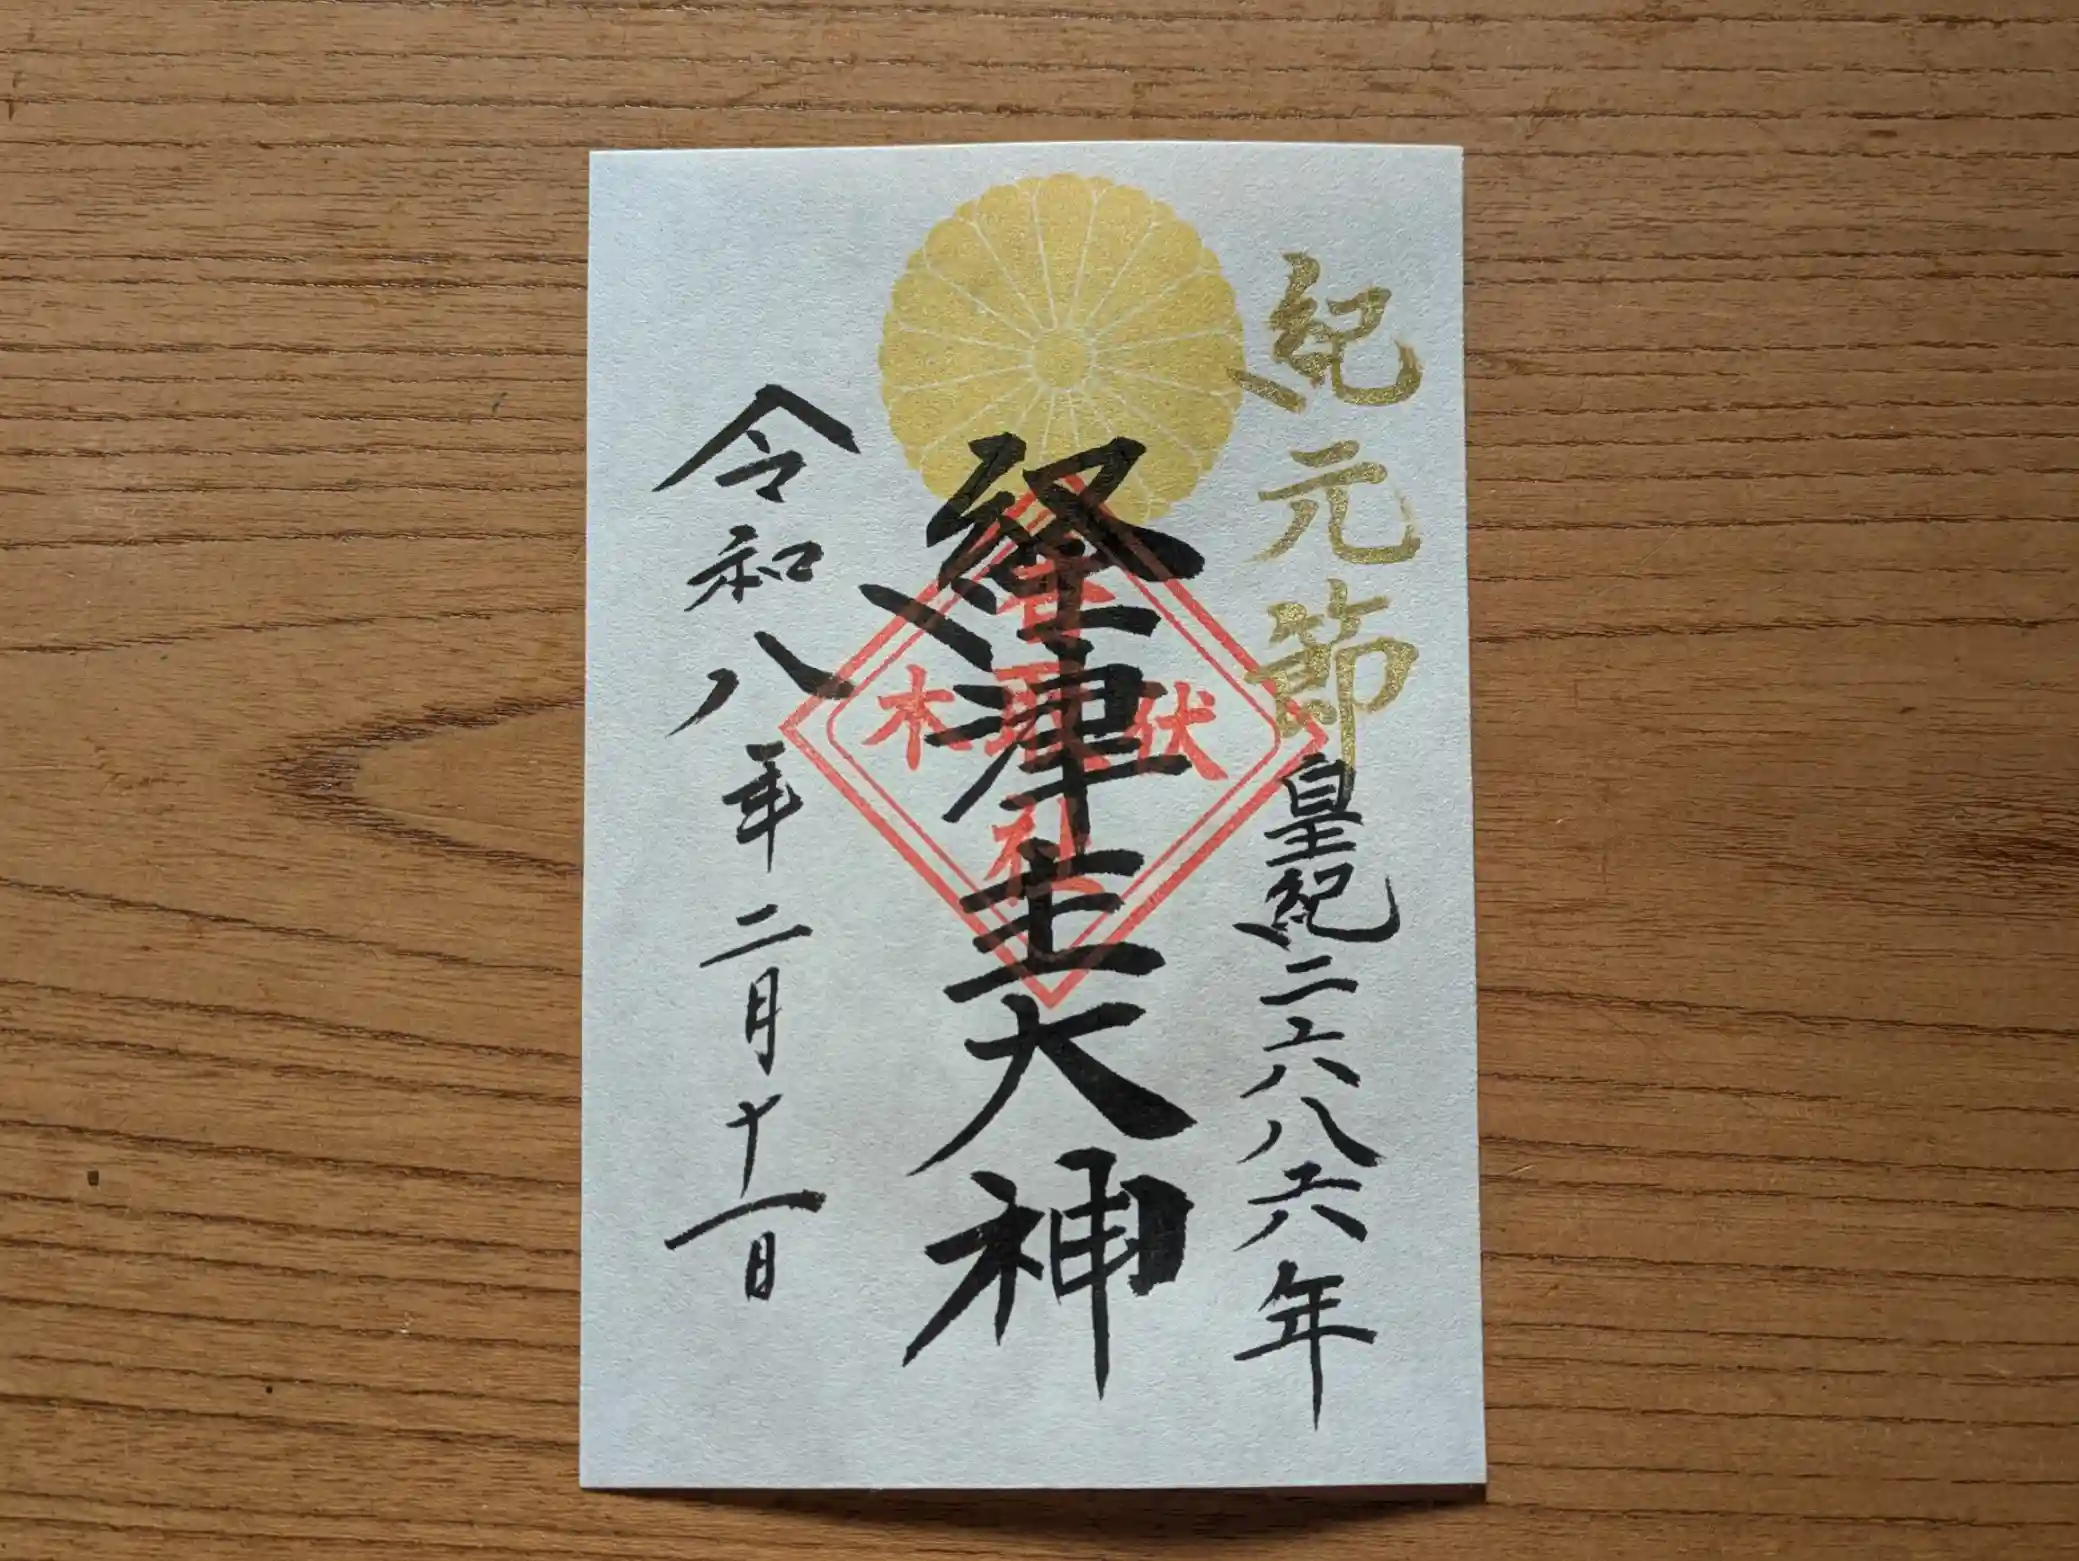 紀元節
皇紀二六八六年
経津主大神
伏木
香取社
令和八年二月十一日